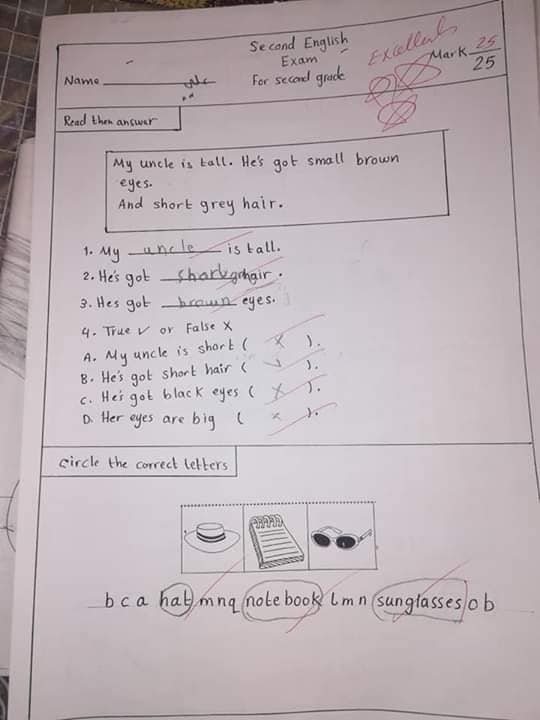 Second English
Exam
For second grade
Name
Excellent
Mark 25
25
Read then answer
My uncle is tall. He's got small brown
eyes.
And short grey hair.
1. My uncle is tall.
2. He's got short grey hair.
3. Hes got brown eyes.
4. True ✓ or False X
A. My uncle is short ( X ).
B. He's got short hair ( ✓ ).
C. He's got black eyes ( X ).
D. Her eyes are big ( X ).
Circle the correct letters
b c a hat m n q notebook l m n sunglasses o b